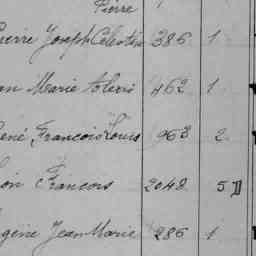 Pierre
Pierre Joseph Célestin 386 1
an Marie Alexis 462 1
ené François Louis 963 2
on Francois 2048 5
gene Jean Marie 286 1